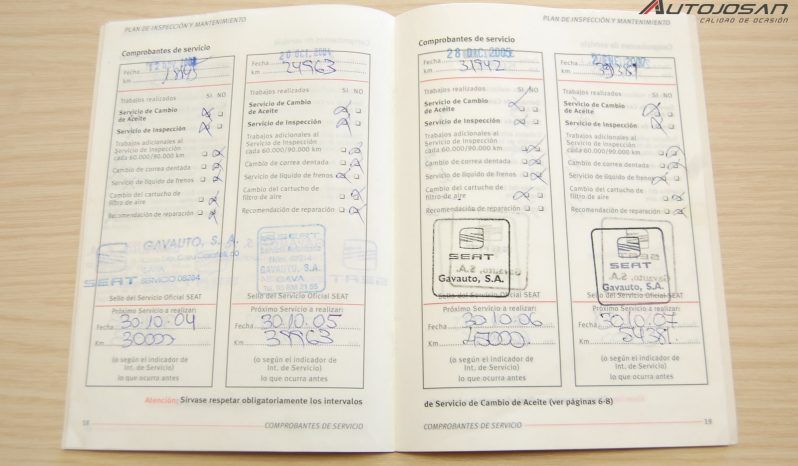 AUTOJOSAN
CALIDAD DE OCASIÓN
PLAN DE INSPECCIÓN Y MANTENIMIENTO
Comprobantes de servicio
Fecha
km
Trabajos realizados SI NO
Servicio de Cambio
de Aceite
Servicio de Inspección
Trabajos adicionales al
Servicio de Inspección
cada 60.000/90.000 km
Cambio de correa dentada
Servicio de líquido de frenos
Cambio del cartucho de
filtro de aire
Recomendación de reparación
GAVAUTO, S. A.
SEAT SERVICIO 08284
Sello del Servicio Oficial SEAT
Próximo Servicio a realizar:
30.10.04
Km 30000
(o según el indicador de
Int. de Servicio)
lo que ocurra antes
20 OCT. 2004
Fecha
km 24963
Trabajos realizados SI NO
Servicio de Cambio
de Aceite
Servicio de Inspección
Trabajos adicionales al
Servicio de Inspección
cada 60.000/90.000 km
Cambio de correa dentada
Servicio de líquido de frenos
Cambio del cartucho de
filtro de aire
Recomendación de reparación
SEAT
GAVAUTO, S.A.
GAVA
Sello del Servicio Oficial SEAT
Próximo Servicio a realizar:
30.10.05
Km 39963
(o según el indicador de
Int. de Servicio)
lo que ocurra antes
Atención: Sírvase respetar obligatoriamente los intervalos
18
COMPROBANTES DE SERVICIO
PLAN DE INSPECCIÓN Y MANTENIMIENTO
Comprobantes de servicio
28 DIC. 2005
Fecha
km 31942
Trabajos realizados SI NO
Servicio de Cambio
de Aceite
Servicio de Inspección
Trabajos adicionales al
Servicio de Inspección
cada 60.000/90.000 km
Cambio de correa dentada
Servicio de líquido de frenos
Cambio del cartucho de
filtro de aire
Recomendación de reparación
SEAT
Gavauto, S.A.
Sello del Servicio Oficial SEAT
Próximo Servicio a realizar:
30.10.06
Km 45000
(o según el indicador de
Int. de Servicio)
lo que ocurra antes
Fecha
km
Trabajos realizados SI NO
Servicio de Cambio
de Aceite
Servicio de Inspección
Trabajos adicionales al
Servicio de Inspección
cada 60.000/90.000 km
Cambio de correa dentada
Servicio de líquido de frenos
Cambio del cartucho de
filtro de aire
Recomendación de reparación
SEAT
Gavauto, S.A.
Sello del Servicio Oficial SEAT
Próximo Servicio a realizar:
30.10.07
Km 54381
(o según el indicador de
Int. de Servicio)
lo que ocurra antes
de Servicio de Cambio de Aceite (ver páginas 6-8)
COMPROBANTES DE SERVICIO
19